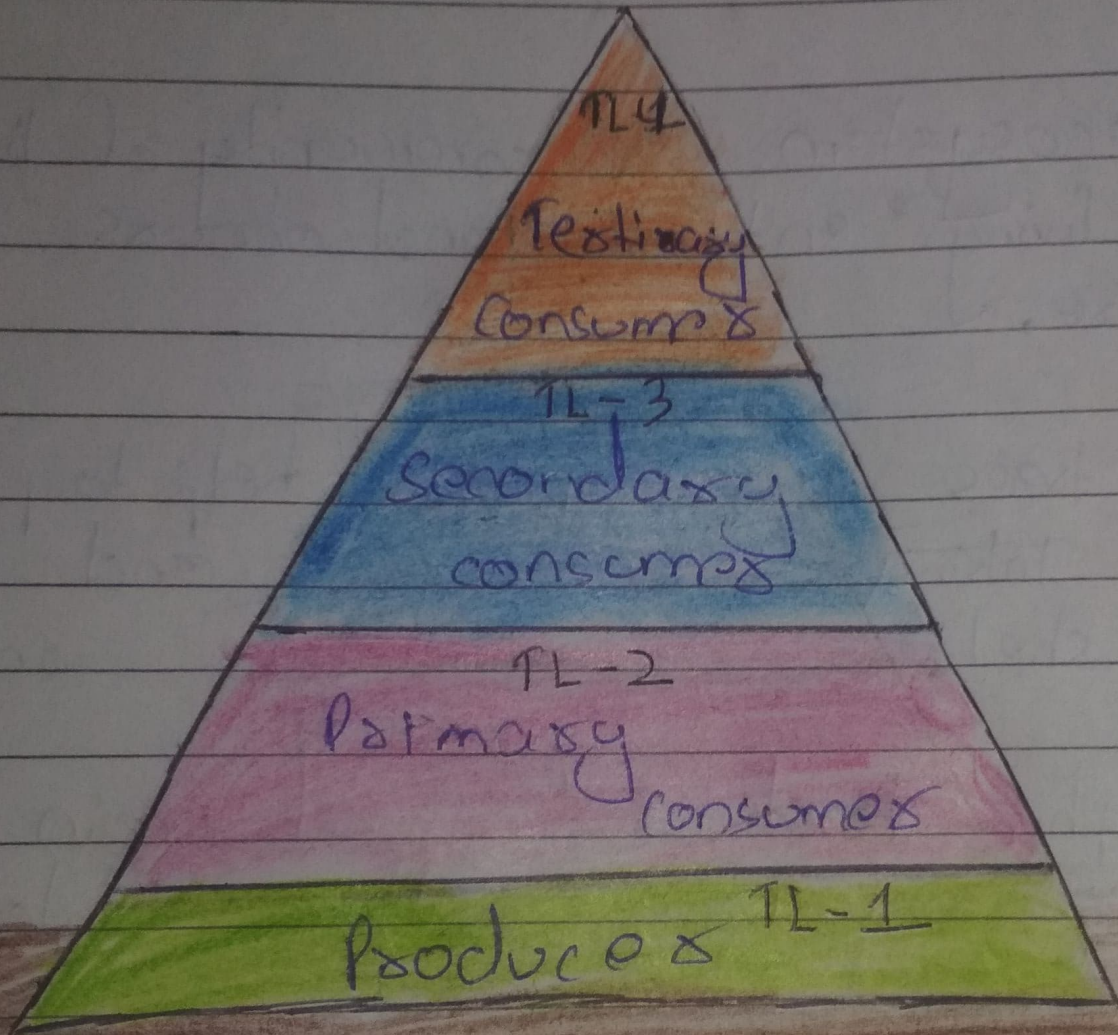 TL4
Testinary
Consumer
TL-3
Secondary
consumer
TL-2
Primary
consumer
TL-1
Producer